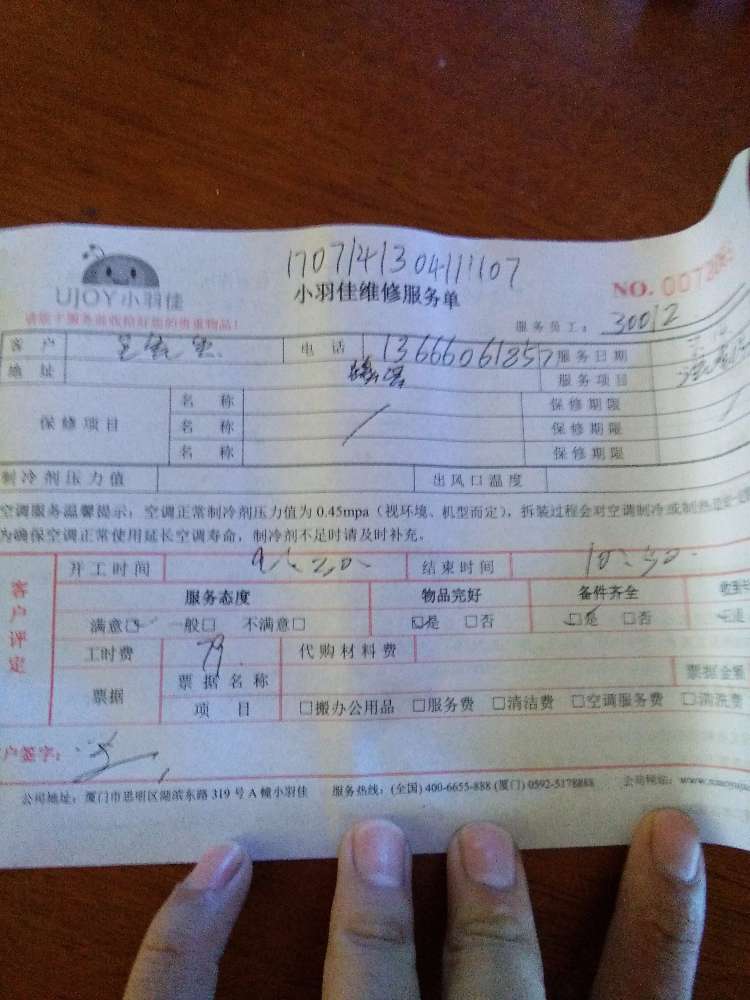 17071413041111107
UJOY小羽佳
小羽佳维修服务单
NO. 0072085
请您于服务前收拾好您的贵重物品!
服务员工: 30012
客户 电话 13666061857 服务日期
地址 服务项目
保修项目 名称 保修期限
名称 保修期限
名称 保修期限
制冷剂压力值 出风口温度
空调服务温馨提示:空调正常制冷剂压力值为0.45mpa(视环境、机型而定),拆装过程会对空调制冷或制热
为确保空调正常使用延长空调寿命,制冷剂不足时请及时补充。
客户评定
开工时间 9:20 结束时间 10:30
服务态度 物品完好 备件齐全
满意☑ 一般□ 不满意□ ☑是 □否 ☑是 □否
工时费 79 代购材料费
票据 票据名称 票据金额
项目 □搬办公用品 □服务费 □清洁费 □空调服务费 □清洗费
户签字:
公司地址:厦门市思明区湖滨东路319号A幢小羽佳 服务热线:(全国)400-6655-888 (厦门)0592-5178888 公司网站: